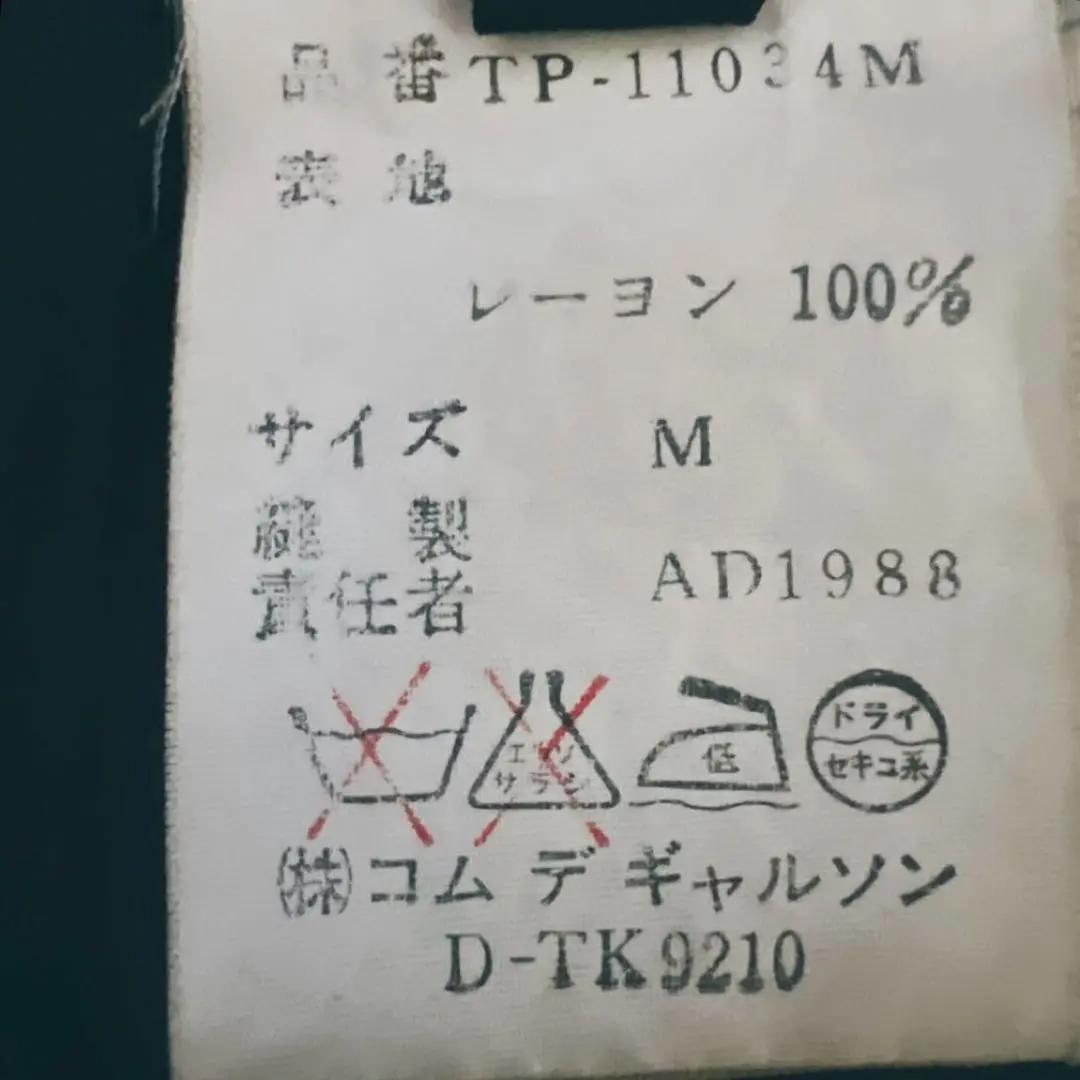 品番 TP-11034M
表地
レーヨン 100%
サイズ M
縫製
責任者 AD1988
エンソ
サラシ
低
ドライ
セキユ系
㈱コム デ ギャルソン
D-TK9210